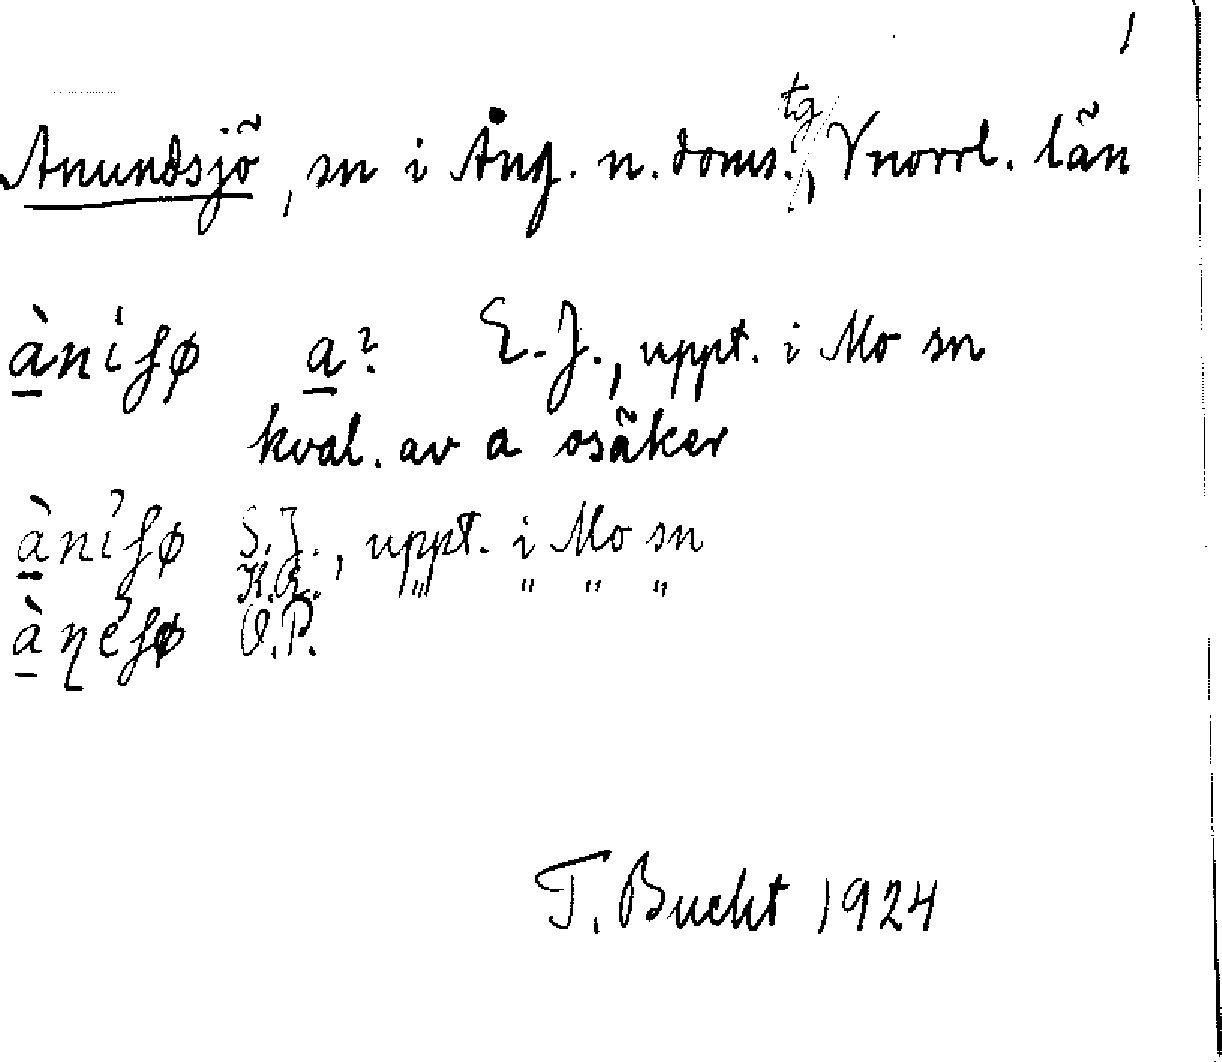 1
Anundsjö, sn i Ång. n. doms.tg, Vnorrl. län
àniʃø a? E.J., uppt. i Mo sn
kval. av a osäker
àniʃø S.J., uppt. i Mo sn
K.G. " " " "
àɳeʃø O.P.
T. Bucht 1924